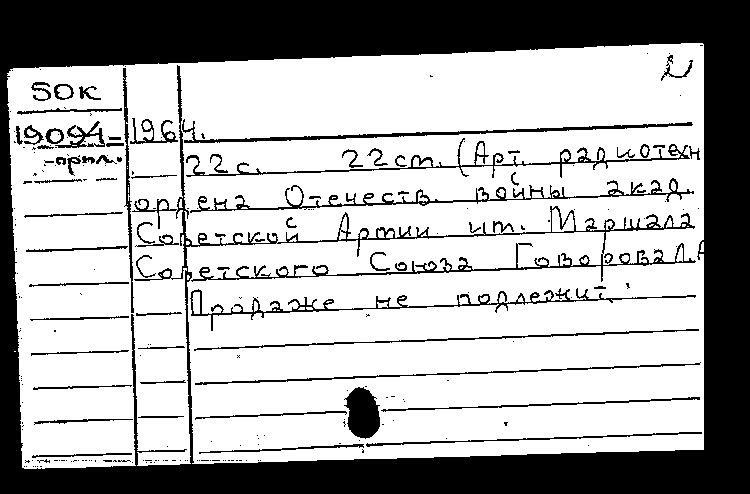 2
50к
19094- 1964.
-прил. 22 с. 22 см. (Арт. радиотехн
ордена Отечеств. войны акад.
Советской Армии им. Маршала
Советского Союза Говорова Л.А
Продаже не подлежит.